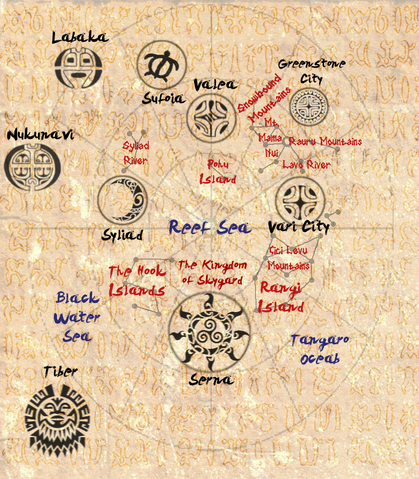 Labaka
Sufoia
Valea
Greenstone
City
Snowbound
Mountains
Mt.
Mama
Itui
Rauru Mountains
Lava River
Nukunavi
Syliad
River
Roku
Island
Syliad
Reef Sea
Vari City
Cici Levu
Mountains
The Hook
Islands
The Kingdom
of Skygard
Rangi
Island
Black
Water
Sea
Tangaro
Oceab
Tiber
Serna